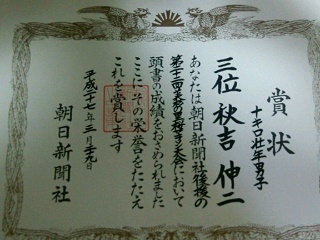 賞状
十キロ壮年男子
三位 秋吉 伸二
あなたは朝日新聞社後援の
大会において
頭書の成績をおさめられました
ここにその栄誉をたたえ
これを賞します
平成 年三月 日
朝日新聞社